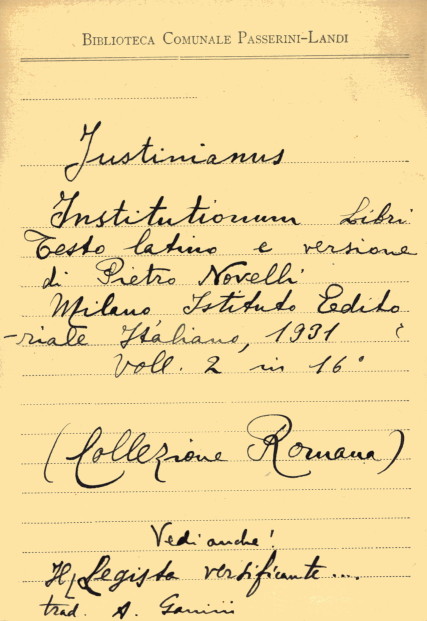 BIBLIOTECA COMUNALE PASSERINI-LANDI
Justinianus
Institutionum Libri
Testo latino e versione
di Pietro Novelli
Milano Istituto Edito
-riale Italiano, 1931
Voll. 2 in 16°
(Collezione Romana)
Vedi anche:
Il Legista versificante....
trad. A.